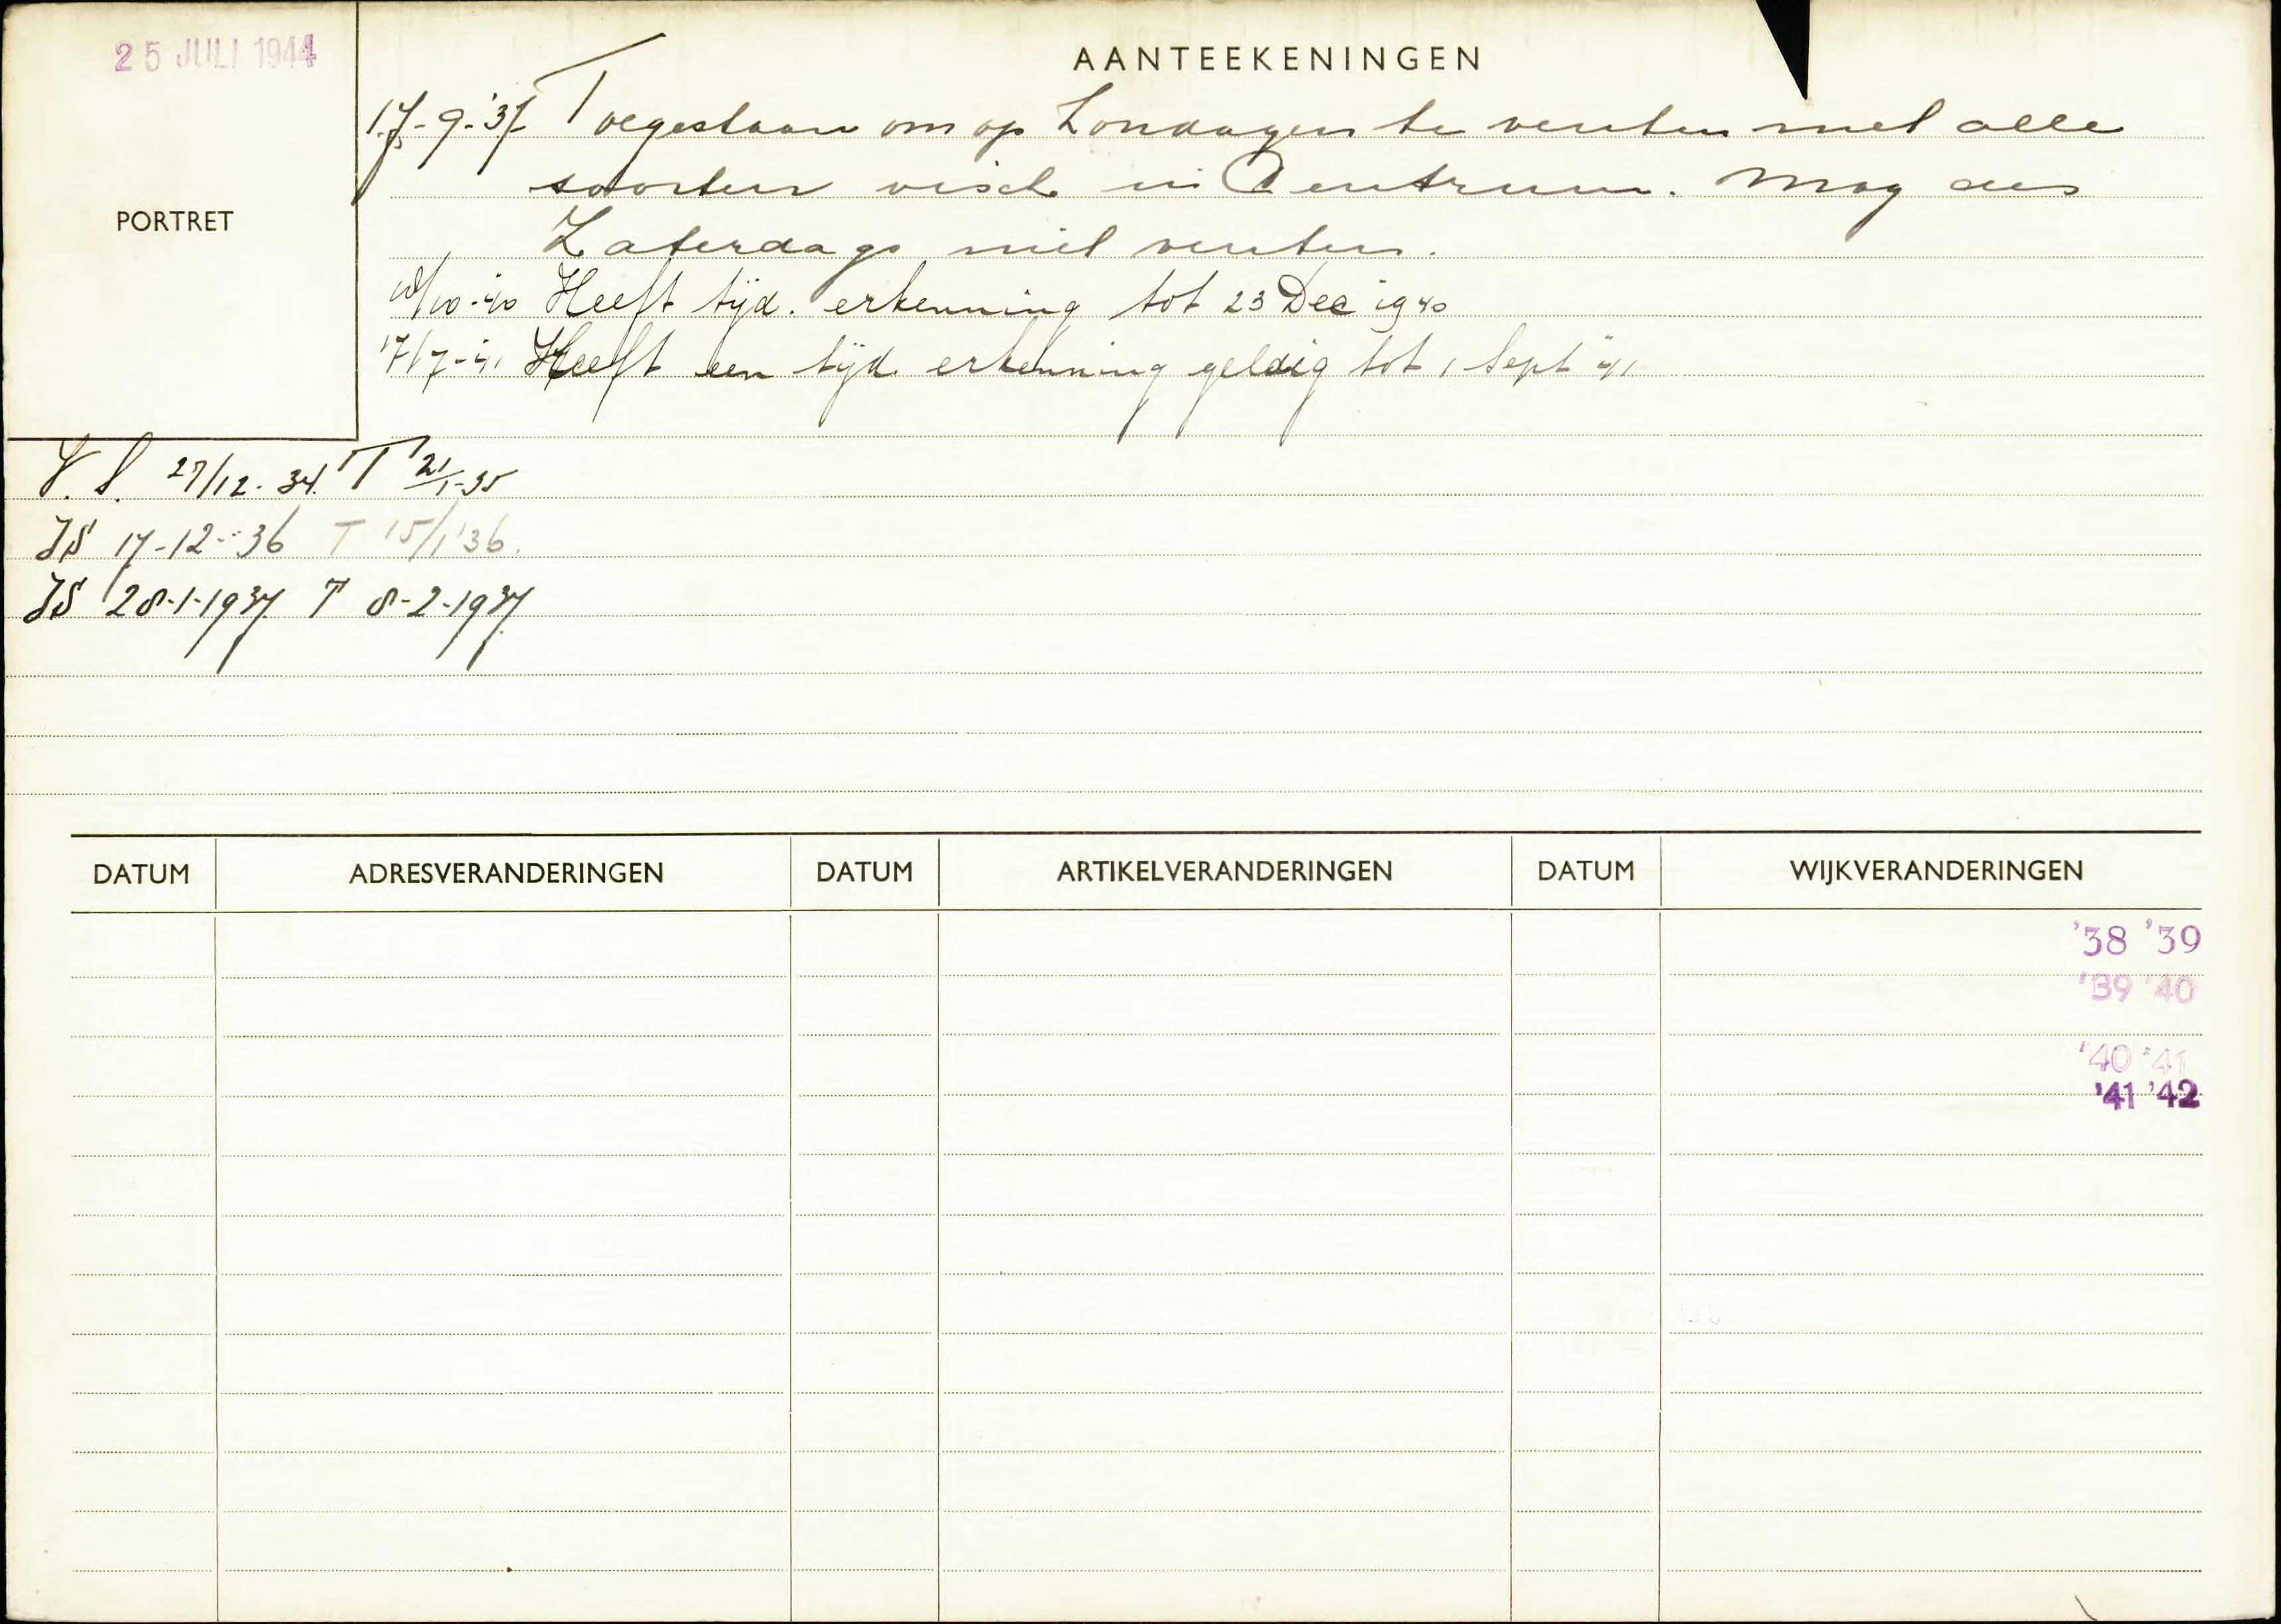 25 JULI 1944
PORTRET
AANTEEKENINGEN
17-9-'37 Toegestaan om op Zondagen te venten met alle
soorten visch in Centrum. Mag des
Zaterdags niet venten.
/10-'40 Heeft tijd. erkenning tot 23 Dec 1940
17/7-'41 Heeft een tijd. erkenning geldig tot 1 Sept '41
V.S. 27/12-34. T 21/1-35
JS 17-12-'36 T 15/1'36.
JS 28-1-1937. T 8-2-1937.
DATUM ADRESVERANDERINGEN DATUM ARTIKELVERANDERINGEN DATUM WIJKVERANDERINGEN
'38 '39
'39 '40
'40 '41
'41 '42